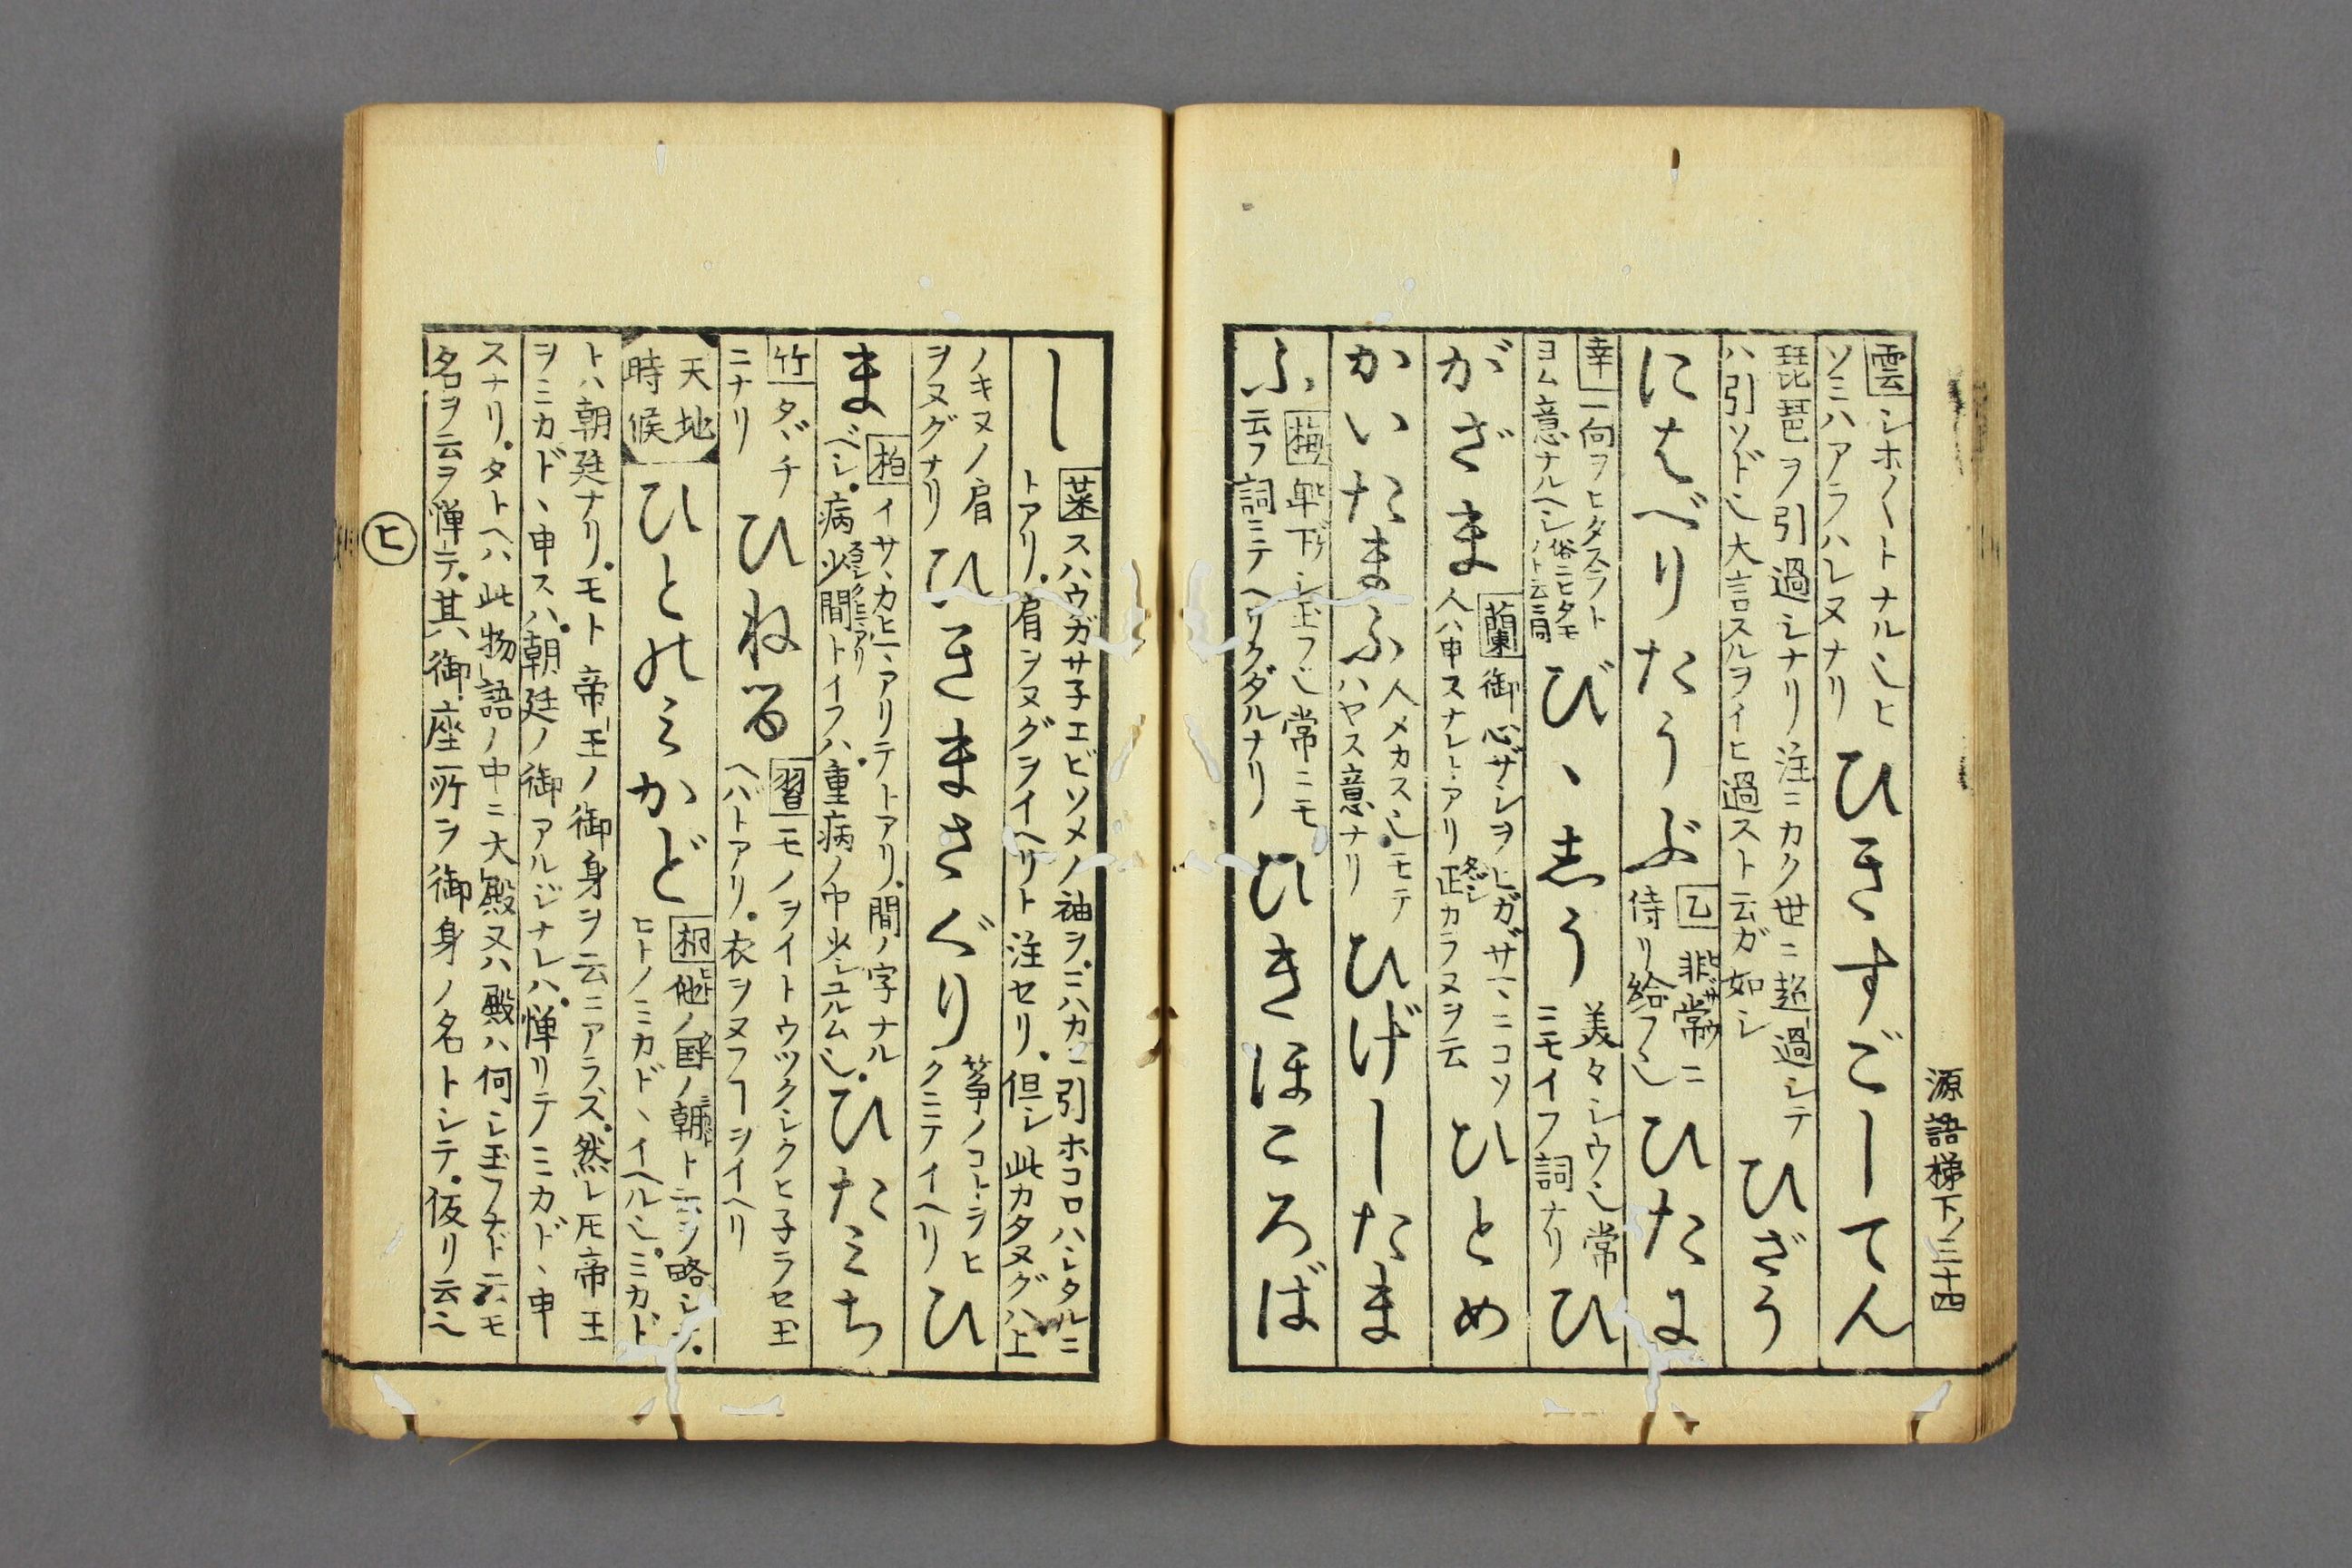 源語梯下ノ三十四
雲 シホ〱トナル也ヒ
ソミハアラハレヌナリ
ひきすごしてん
琵琶ヲ引過シナリ注ニカク世ニ超過シテ
ハ引ソドシ大言スルヲイヒ過スト云ガ如シ
ひざう
にはべりたうぶ
乙 非常ニ
侍リ給フ也
ひたに
幸 一向ヲヒタスラト
ヨム意ナルヘシ俗ニヒタモノト云ニ同
びゝしう
美々シウ也常
ニモイフ詞ナリ
ひ
がざま
蘭 御心ザシヲヒガザマニコソ
人ハ申スナレトアリ正カラヌヲ云
ひとめ
かいたまふ
人メカス也モテ
ハヤス意ナリ
ひげしたま
ふ
梅 卑下シ玉フ也常ニモ
云フ詞ニテヘリクダルナリ
ひきほころば
し
菜 スハウガサ子エビソメノ袖ヲミハカニ引ホコロハシタルニ
トアリ肩ヲヌグヲイヘリト注セリ但シ此カタヌグハ上
ノキヌノ肩
ヲヌグナリ
ひきまさぐり
筝ノコトヲヒ
クニテイヘリ
ひ
ま
柏 イサヽカヒマアリテトアリ間ノ字ナル
ベシ病少間トイフハ重病ノ中少シユルム也
スコシクヒマアリ
ひたみち
竹 タヾチ
ニナリ
ひねる
習 モノヲイトウツクシクヒ子ラセ玉
ヘバトアリ衣ヲヌフヿヲイヘリ
天地
時候
ひとのみかど
桐 他ノ国ノ朝ト云ヲ略シテ
ヒトノミカドヽイヘル也ミカド
トハ朝廷ナリモト帝王ノ御身ヲ云ニアラズ然レ𪜈帝王
ヲミカドヽ申スハ朝廷ノ御アルジナレハ憚リテミカドヽ申
スナリタトヘハ此物語ノ中ニ大殿又ハ殿ハ何シ玉フナド云モ
名ヲ云ヲ憚テ其御座所ヲ御身ノ名トシテ仮リ云ヘ
ヒ